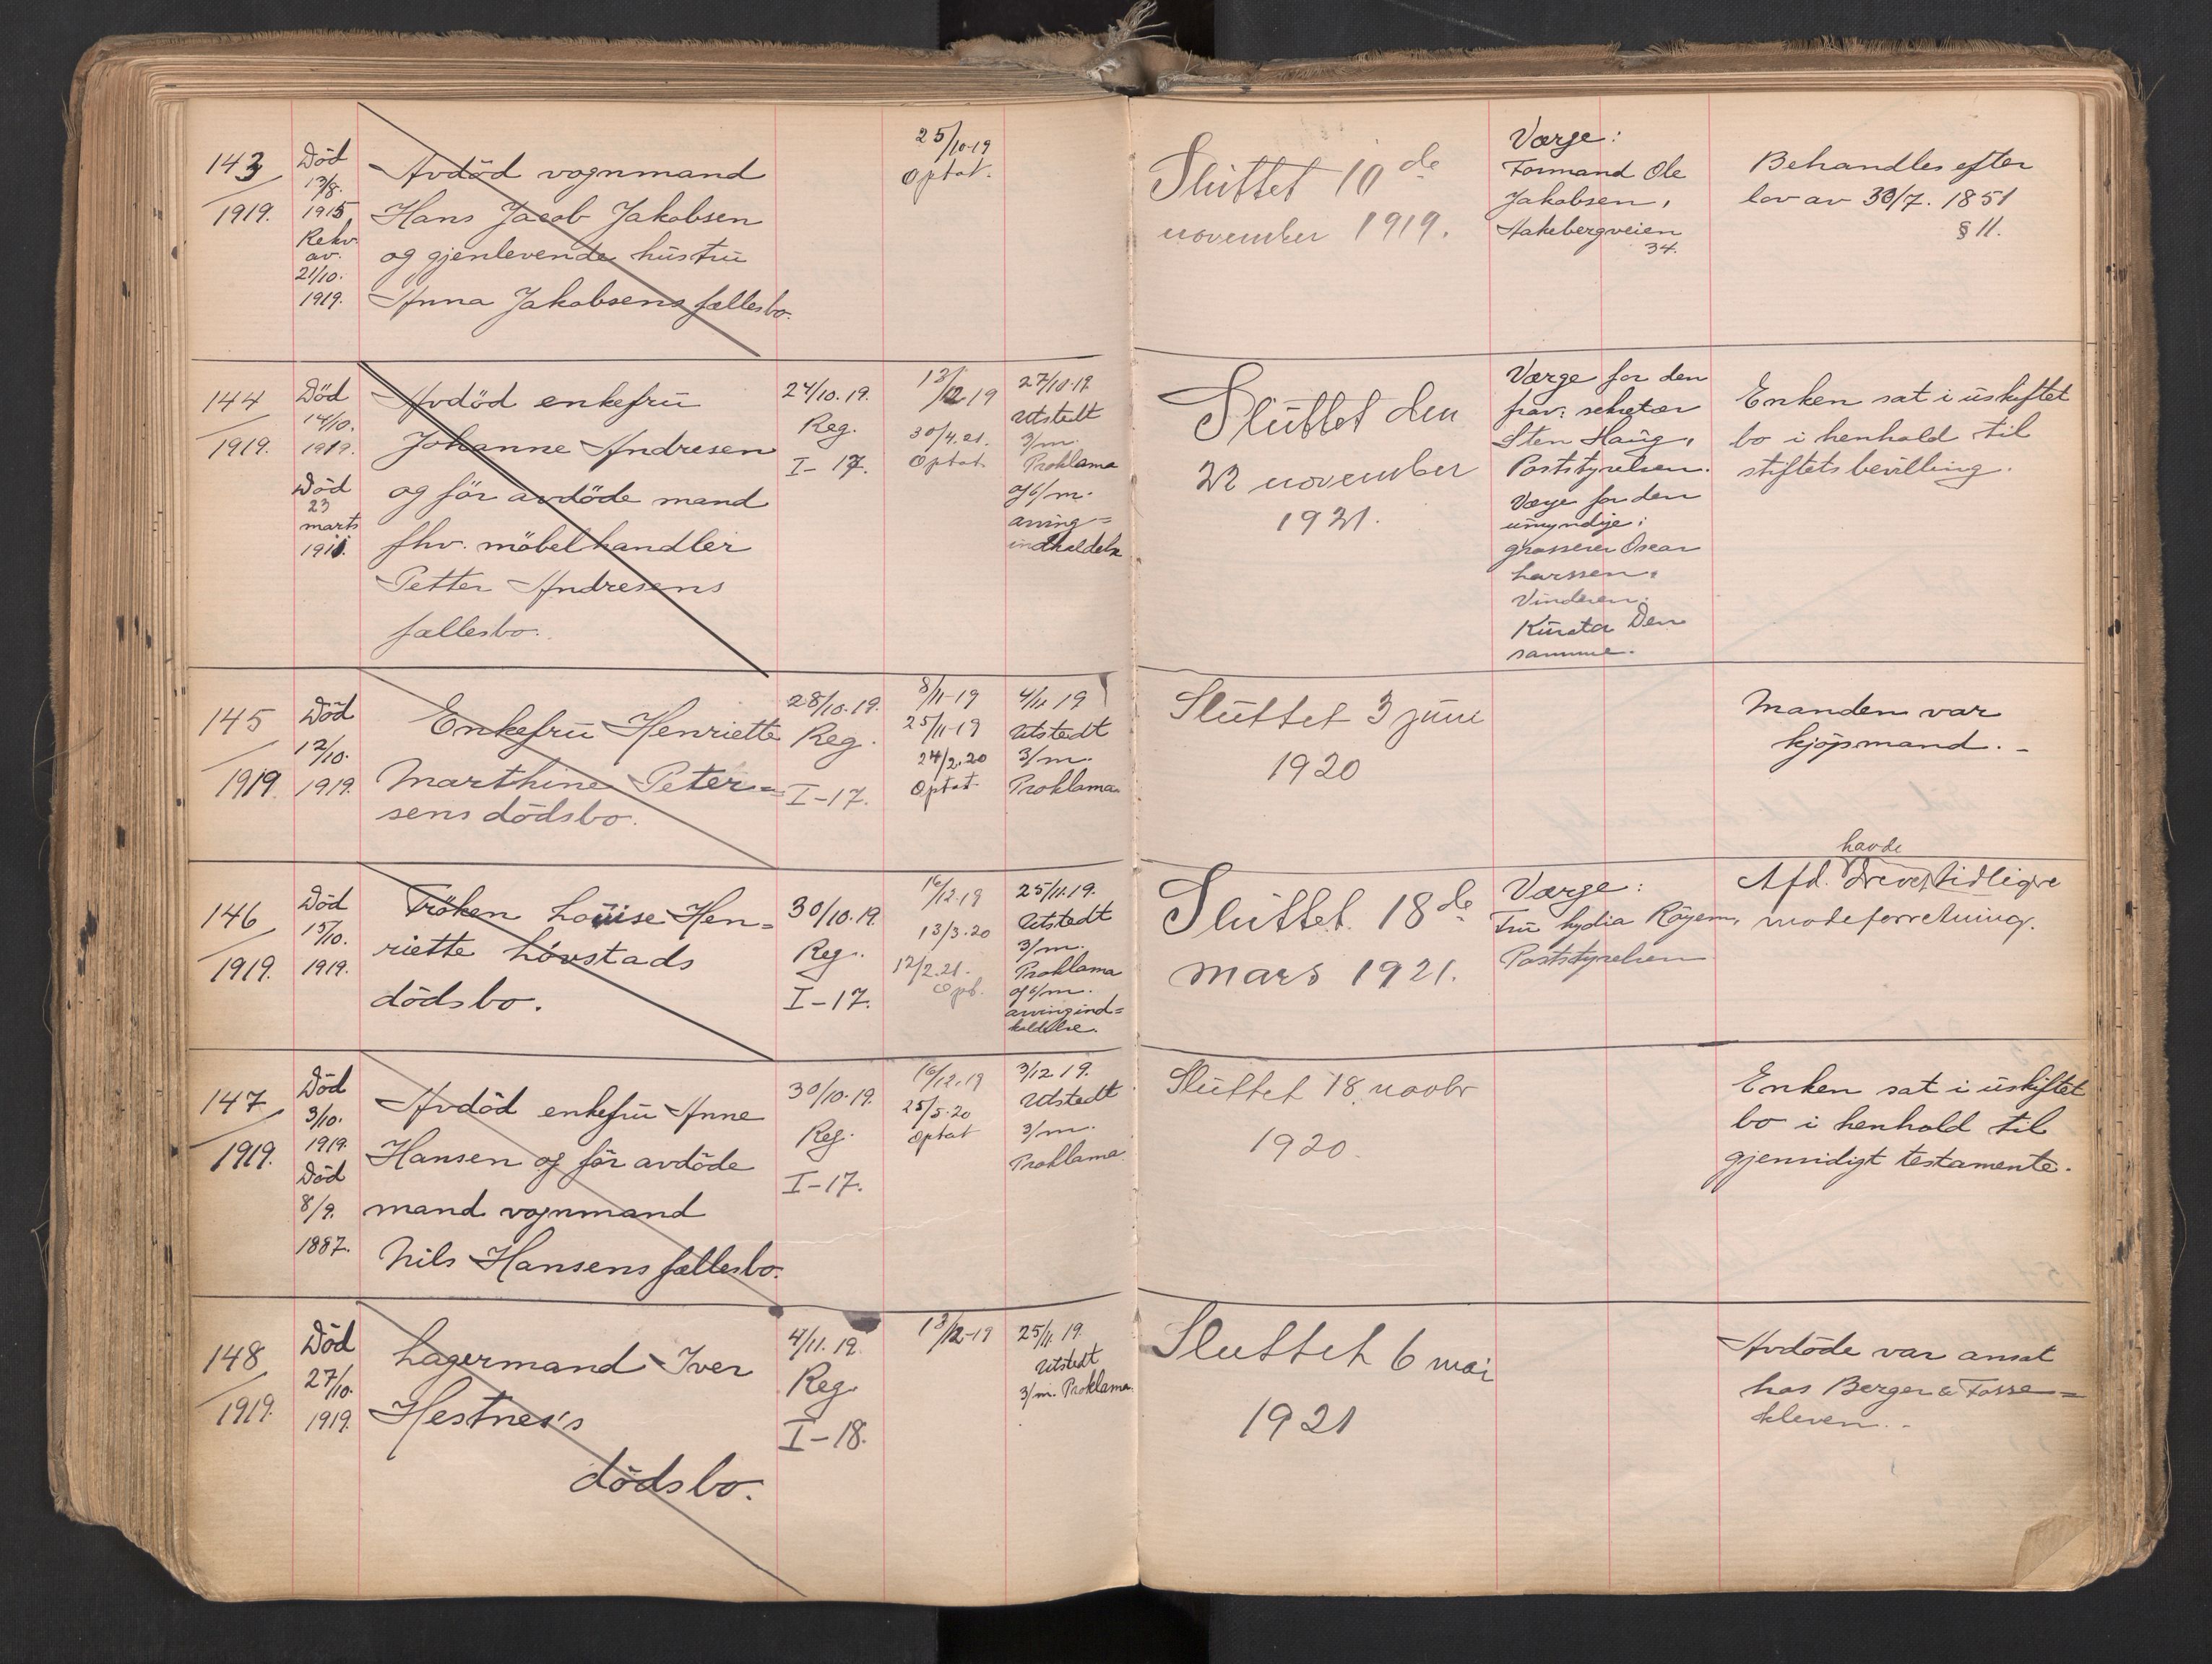 143
1919.
Död
13/8.
1915,
Rekv.
av.
21/10.
1919.
Avdöd vognmand
Hans Jacob Jakobsen
og gjenlevende hustru
Anna Jakobsens fællesbo.
25/10-19
Optat.
Sluttet 10de
november 1919.
Værge:
Formand Ole
Jakobsen,
Aakebergveien
34.
Behandles efter
lov av 30/7. 1851
§ 11.
144
1919.
Död
14/10.
1919.
Död
23
marts
1911.
Avdöd enkefru
Johanne Andresen
og för avdöde mand
fhv. möbelhandler
Petter Andresens
fællesbo.
27/10.19.
Reg.
I-17.
13/12 19
30/4.21.
Optat
27/10.19.
Utstedt
3/m.
Proklama
og 6/m.
arving=
indkaldelse
Sluttet den
22 november
1921.
Værge for den
frav: sekretær
Sten Haug,
Poststyrelsen.
Værge for den
umyndige:
grosserer Oscar
Larssen,
Vinderen.
Kurator Den
samme.
Enken sat i uskiftet
bo i henhold til
stiftets bevilling.
145
1919.
Död
12/10.
1919.
Enkefru Henriette
Marthine Peter=
sens dödsbo.
28/10.19.
Reg.
I-17.
8/11-19
25/11-19
24/2.20
Optat
4/11 19
Utstedt
3/m.
Proklama
Sluttet 3 juni
1920
Manden var
kjöpmand. -
146
1919.
Död
15/10.
1919.
Fröken Louise Hen=
riette Lövstads
dödsbo.
30/10.19.
Reg.
I-17.
16/12.19
13/3.20
12/2.21.
Opt.
25/11.19.
Utstedt
3/m.
Proklama
og 6/m.
arvingind=
kaldelse.
Sluttet 18de
mars 1921.
Værge:
Fru Lydia Röyem,
Poststyrelsen
havde
Afd. drevet tidligre
modeforretning.
147
1919.
Död
3/10.
1919.
Död
8/9.
1887.
Avdöd enkefru Anne
Hansen og för avdöde
mand vognmand
Nils Hansens fællesbo.
30/10.19.
Reg.
I-17.
16/12.19
25/5.20
Optat
3/12 19.
Utstedt
3/m.
Proklama
Sluttet 18. novbr
1920.
Enken sat i uskiftet
bo i henhold til
gjensidigt testamente.
148
1919.
Död
27/10.
1919.
Lagermand Iver
Hestnes's
dödsbo.
4/11.19.
Reg.
I-18.
13/12-19
25/11.19.
Utstedt
3/m. Proklama.
Sluttet 6 mai
1921
Avdöde var ansat
hos Berger & Fosse=
kleven. -